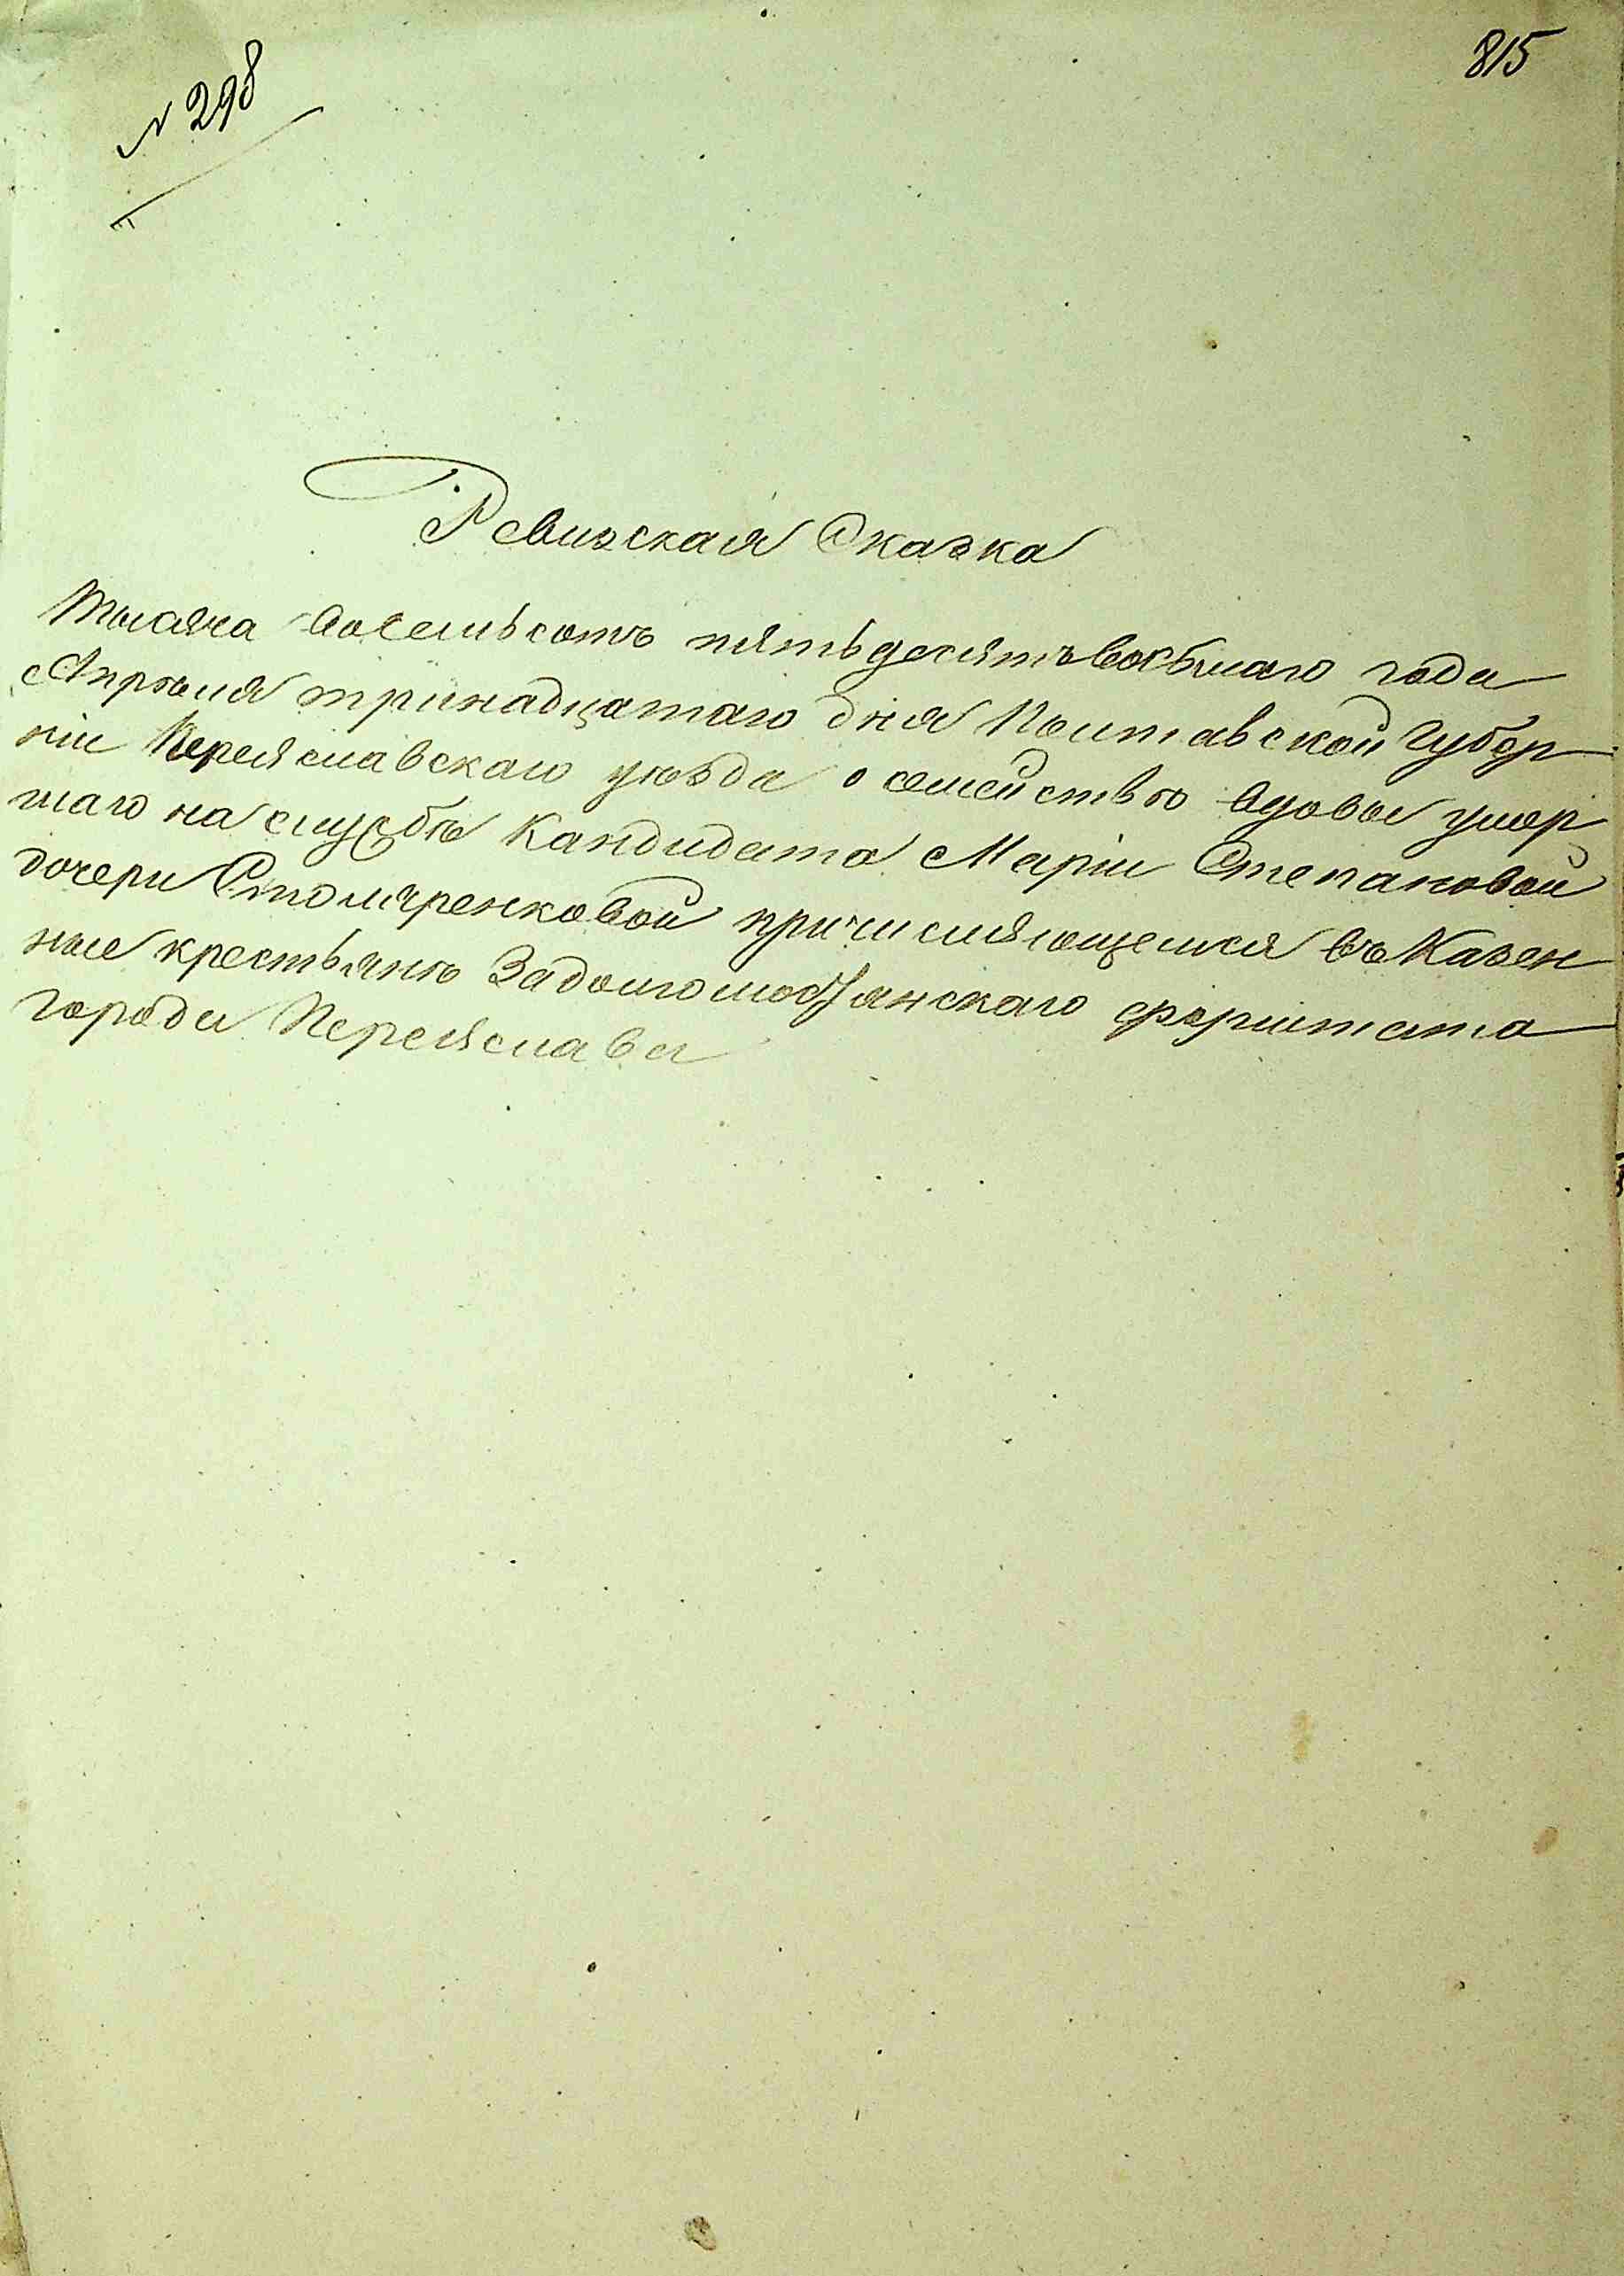 № 298
815
Ревизская Сказка
Тысяча восемьсотъ пятьдесятъ восьмаго года
Апрѣля тринадцатаго дня Полтавской Губер
ніи Переяславскаго уѣзда о семействѣ вдовы умер
шаго на службѣ Кандидата Маріи Степановой
дочери Столяренковой причисляющемся въ Казен
ные крестьянѣ Задолгомостянскаго форштата
города Переяслава